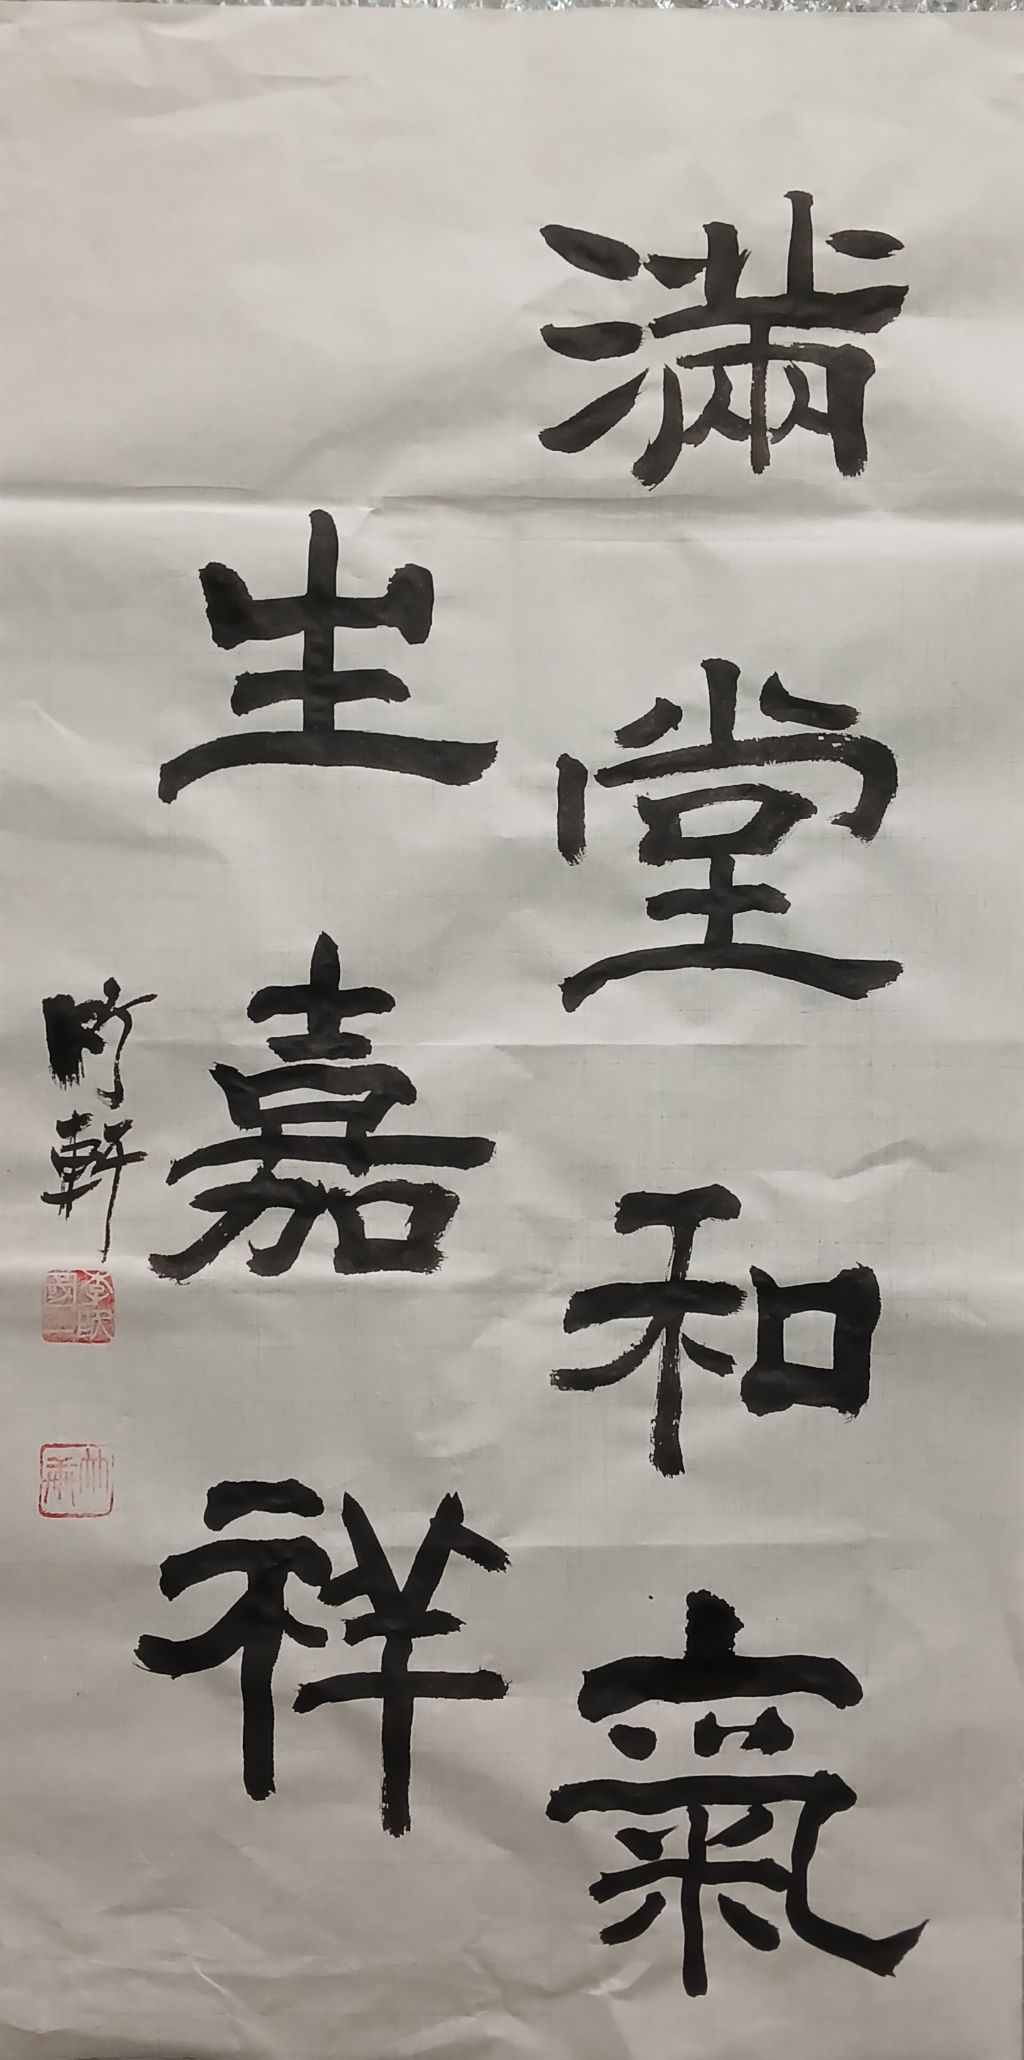 滿堂和氣
生嘉祥
竹軒